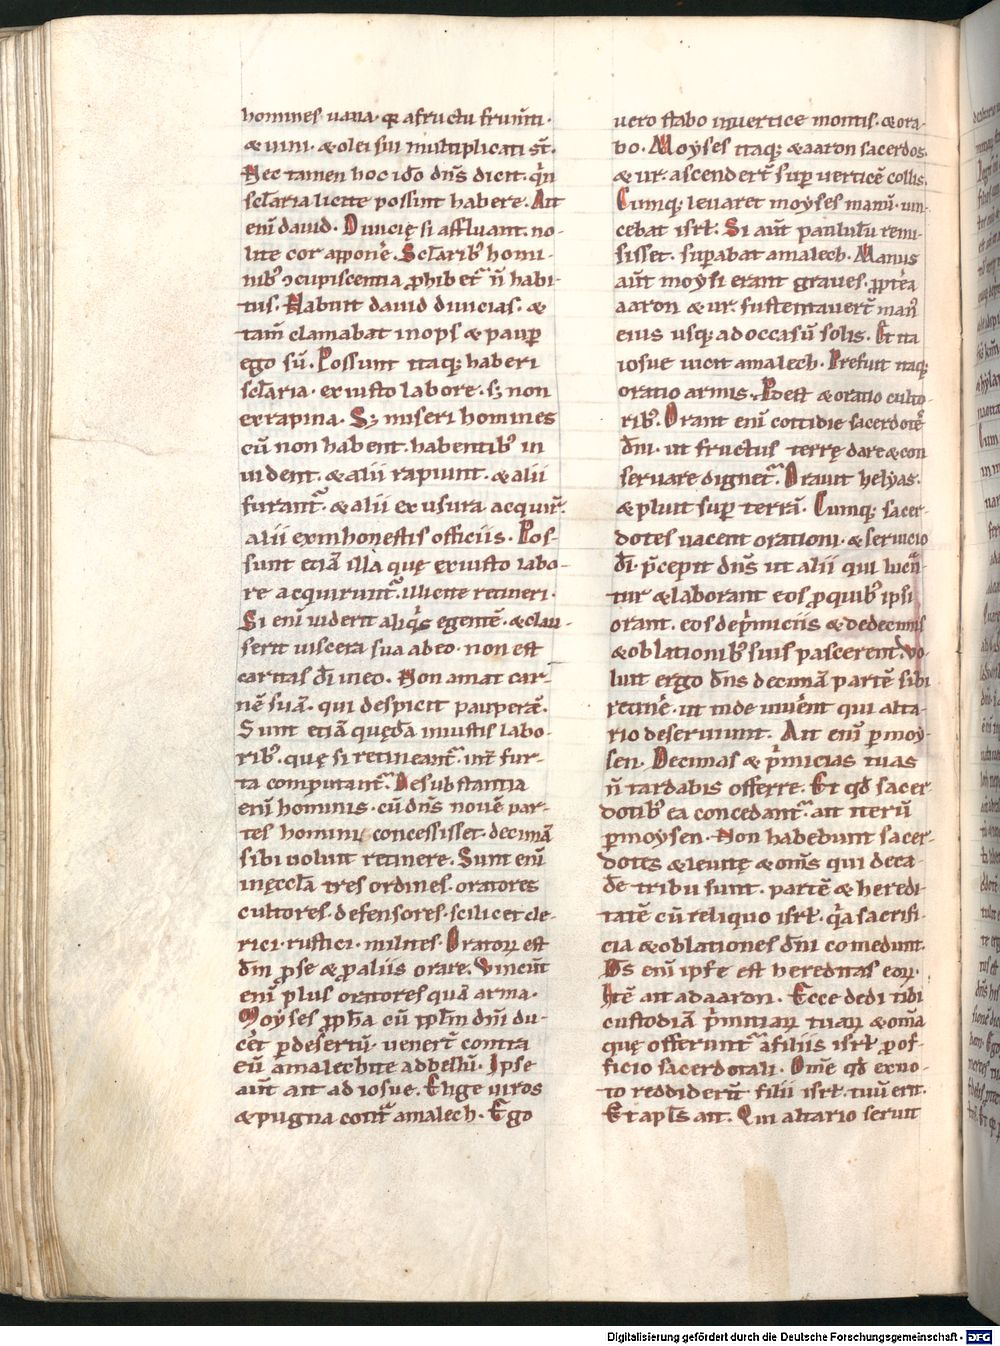 homines uana· q̅a a fructu frum̅ti·
& uini· & olei sui multiplicati st̅·
Nec tamen hoc id̅o dn̅s dicit· q̅n
sc̅laria licite possint habere. Ait
eni̅ dauid· Diuicię si affluant· no-
lite cor appone̅. Sc̅larib; homi-
nib; ɔcupiscentia p̱hibet̅ n̅ habi-
tus. Habuit dauid diuicias· &
tam̅ clamabat inops & paup̱
ego su̅. Possunt itaq; haberi
sc̅laria· ex iusto labore· s; non
ex rapina. S; miseri homines
cu̅ non habent· habentib; in
uident· & alii rapiunt· & alii
furant̅· & alii ex usura acquir̅·
alii ex inhonestis officiis· Pos-
sunt etia̅ illa quę ex iusto labo-
re acquirunt̅· illicite retineri·
Si eni̅ uiderit aliq̅s egente̅· & clau-
serit uiscera sua ab eo· non est
caritas di̅ in eo. Non amat car-
ne̅ sua̅· qui despicit paupere̅.
Sunt etia̅ quęda̅ iniustis labo-
rib;· quę si retineant̅· int̅ fur-
ta computant̅. De substantia
eni̅ hominis· cu̅ dn̅s noue̅ par-
tes homini concessisset· decima̅
sibi uoluit retinere. Sunt eni̅
in ęccl̅a tres ordines· oratores
cultores· defensores· scilicet cle-
rici· rustici· milites· Oratoꝝ est
dm̅ p̱ se & p̱ aliis orare. Vincu̅t
eni̅ plus oratores qua̅ arma·
Moyses p̱ph̅a cu̅ pp̅lm̅ dn̅i du-
ce̅t p̱ desertu̅· uener̅t contra
eu̅ amalechite ad bellu̅. Ipse
aut̅ ait ad iosue. Elige uiros
& pugna cont̅ amalech· Ego
uero stabo in uertice montis· & ora-
bo. Moyses itaq; & aaron sacerdos·
& ur· ascender̅t sup̱ uertice̅ collis.
Cumq; leuaret moyses manu̅· uin-
cebat isrl̅. Si aut̅ paululu̅ remi-
sisset· sup̱abat amalech. Manus
aut̅ moysi erant graues· p̱pt̅ea
aaron & ur· sustentauer̅t man̅
eius usq; ad occasu̅ solis. Et ita
iosue uicit amalech. Prefuit itaq;
oratio armis. P̱dest & oratio culto-
rib;. Orant eni̅ cottidie sacerdote̅
dn̅i· ut fructus terrę dare & con
seruare dignet̅. Orauit helyas·
& pluit sup̱ terra̅. Cumq; sacer-
dotes uacent orationi· & seruicio
di̅· p̅cepit dn̅s ut alii qui lucra̅-
tur & laborant eos p̱ quib; ipsi
orant· eos de p̅miciis & de decimis
& oblationib; suis pascerent. Vo-
luit ergo dn̅s decima̅ parte̅ sibi
retine̅· ut inde uiue̅nt qui alta-
rio deseruiunt. Ait eni̅ p̱ moy-
sen· Decimas & p̅micias tuas
n̅ tardabis offerre. Et qd̅ sacer
dotib; ea concedant̅· ait iteru̅
p̱ moysen· Non habebunt sacer-
dotes & leuitę & om̅s qui de ea-
de̅ tribu sunt· parte̅ & heredi-
tate̅ cu̅ reliquo isrl̅· q̅a sacrifi-
cia & oblationes dn̅i comedunt·
Ds̅ eni̅ ipse est hereditas eoꝝ·
Ite̅ ait ad aaron· Ecce dedi tibi
custodia̅ p̅mitiaꝝ tuaꝝ & om̅a
quę offerunt̅ a filiis isrl̅ p̱ of-
ficio sacerdotali. Om̅e qd̅ ex uo-
to reddider̅t filii isrl̅· tuu̅ erit·
Et apl̅s ait. Qui altario seruit
Digitalisierung gefördert durch die Deutsche Forschungsgemeinschaft - DFG